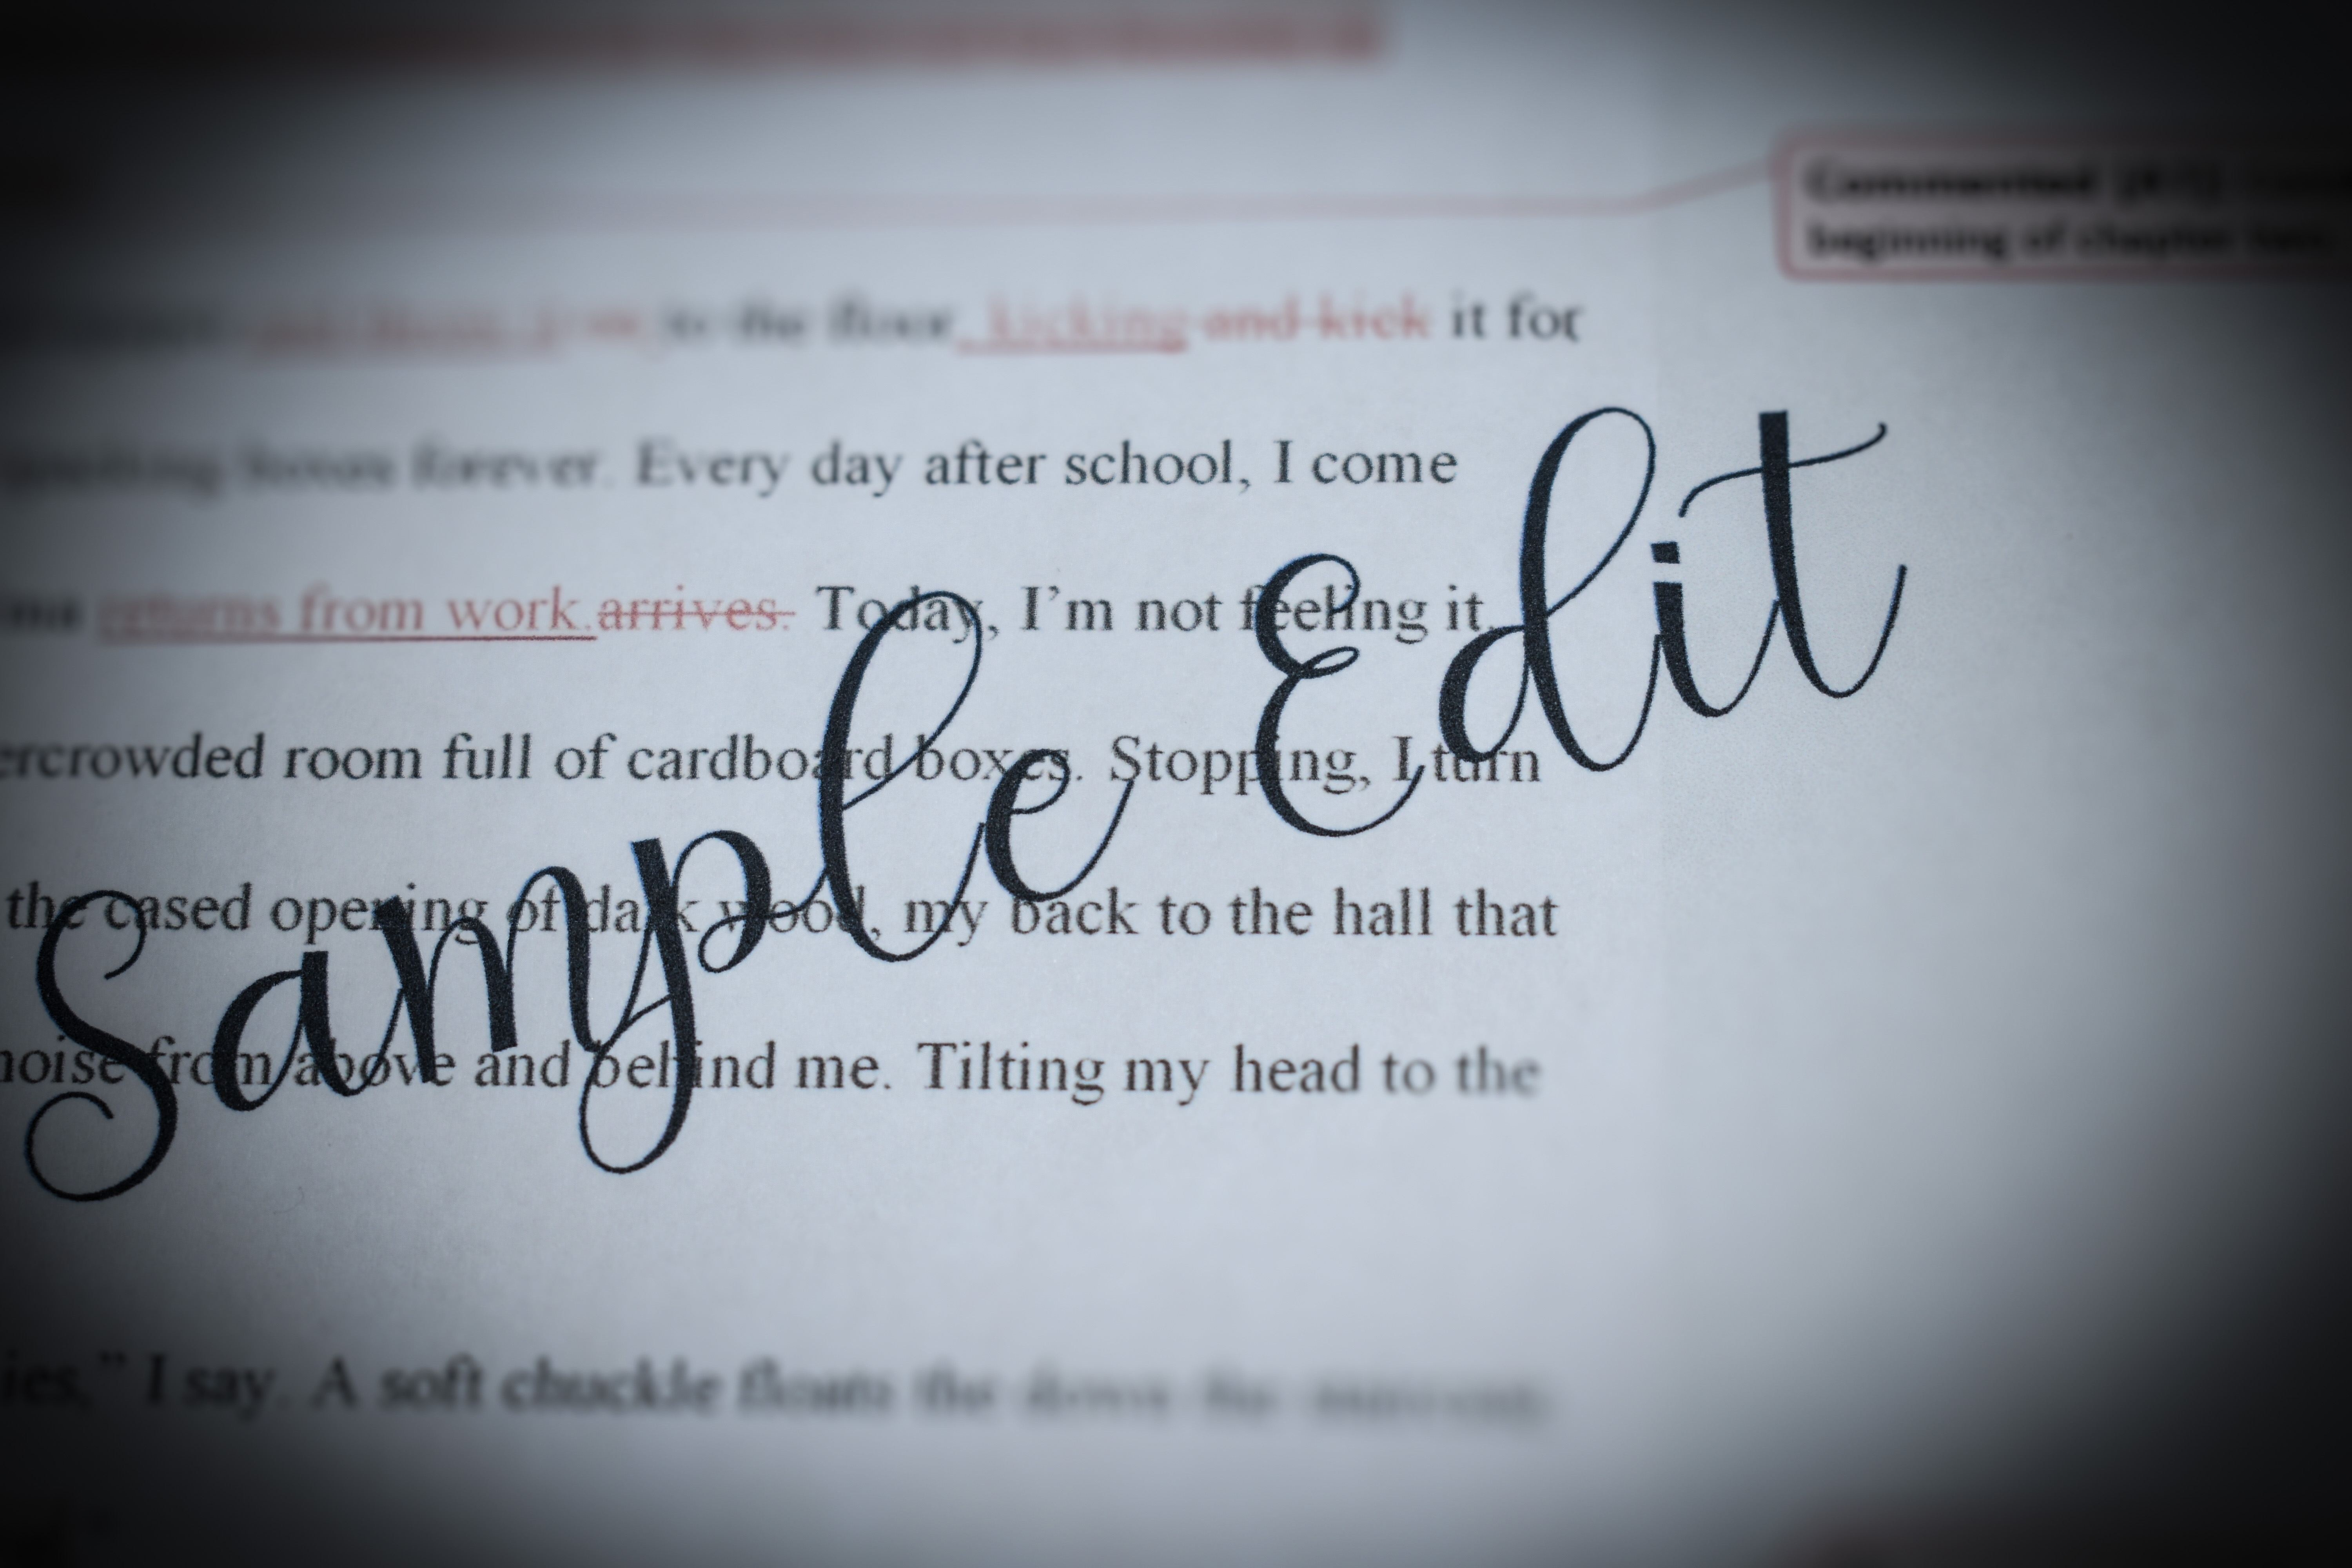 Commented
beginning of chapter
to the floor, kicking and kick it for
boxes forever. Every day after school, I come
returns from work. arrives. Today, I'm not feeling it.
ercrowded room full of cardboard boxes. Stopping, I turn
the cased opening of dark wood, my back to the hall that
noise from above and behind me. Tilting my head to the
ies,” I say. A soft chuckle floats the down the
Sample Edit